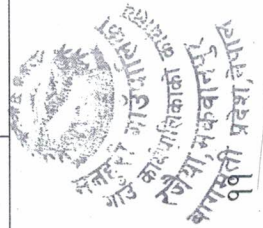 मनहरी गाउँपालिका
गाउँ कार्यपालिकाको कार्यालय
रजैया, मकवानपुर
बागमती प्रदेश, नेपाल
११